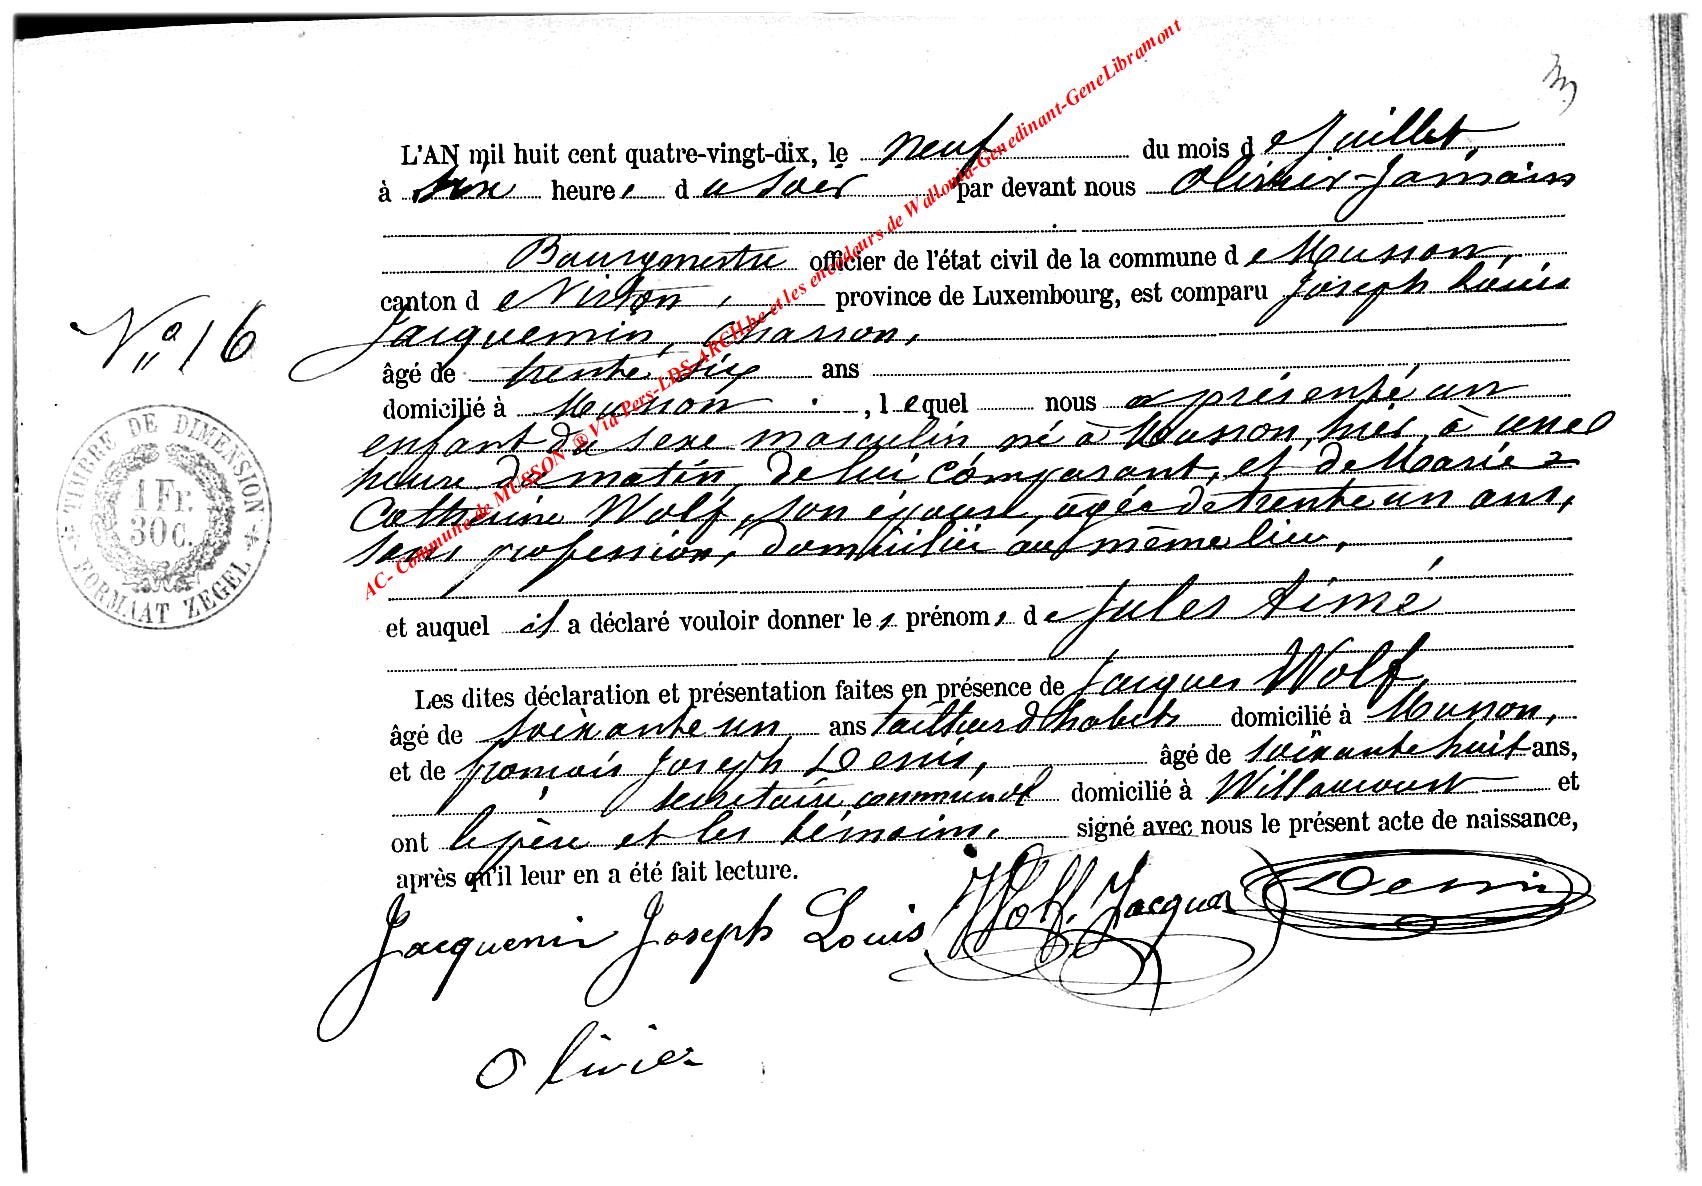 L'AN mil huit cent quatre-vingt-dix, le neuf du mois de Juillet,
à six heures du soir par devant nous Olivier-Jamain
Bourgmestre officier de l'état civil de la commune de Musson,
canton de Virton, province de Luxembourg, est comparu Joseph Louis
Jacquemin, Charron,
âgé de trente six ans
domicilié à Musson, lequel nous a présenté un
enfant du sexe masculin né à Musson, hier, à une
heure du matin, de lui comparant, et de Marie
Catherine Wolf, son épouse, âgée de trente un ans,
sans profession, domiciliée au même lieu,
et auquel il a déclaré vouloir donner les prénoms de Jules Aimé
Les dites déclaration et présentation faites en présence de Jacques Wolf,
âgé de soixante un ans tailleur d'habits domicilié à Musson,
et de françois Joseph Denis, âgé de soixante huit ans,
secrétaire communal domicilié à Willancourt et
ont le père et les témoins signé avec nous le présent acte de naissance,
après qu'il leur en a été fait lecture.
Jacquemin Joseph Louis Wolf. Jacques Denis
Olivier
No 16
TIMBRE DE DIMENSION
1 Fr.
30c.
FORMAAT ZEGEL
AC- Commune de MUSSON ® Via Pers-LDS-ARCH.be et les encodeurs de Wallonia-Genedinant-GeneLibramont